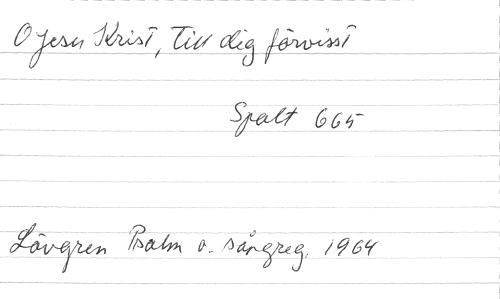 O Jesu Krist, Till dig förvisst
Spalt 665
Lövgren Psalm o. sångreg. 1964